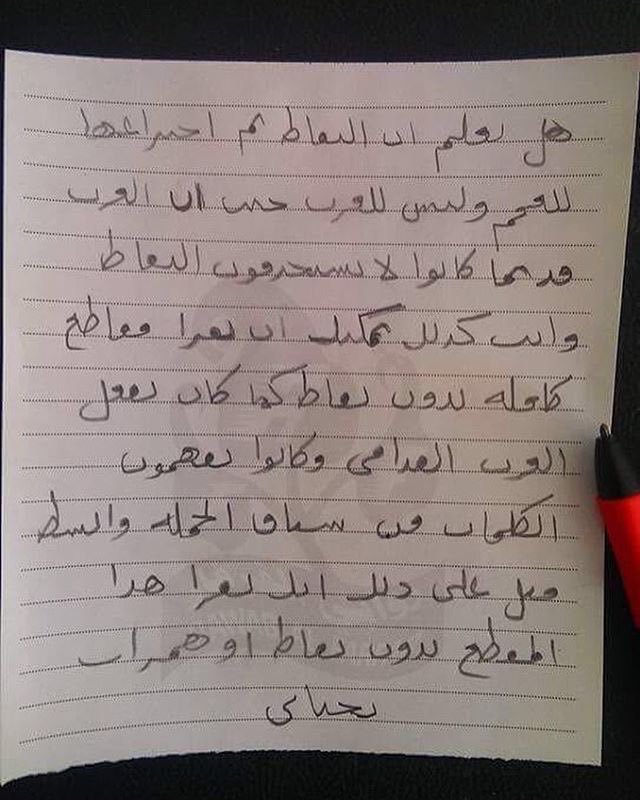 هل ٮعلم اں الٮٯاط ٮم احٮراعها
للعحم ولٮس للعرٮ حٮٮ اں العرٮ
ٯدٮما كاٮوا لا ٮسٮحدموں الٮٯاط
واٮٮ كدلك ٮمكٮك اں ٮٯرا مٯاطع
كامله ٮدوں ٮٯاط كما كاں ٮڡعل
العرٮ الٯدامى وكاٮوا ٮڡهموں
الكلماٮ مں سٮاٯ الحمله واٮسط
مٮل على دلك اٮك ٮٯرا هدا
المٯطع ٮدوں ٮٯاط او همراٮ
ٮحٮاٮى